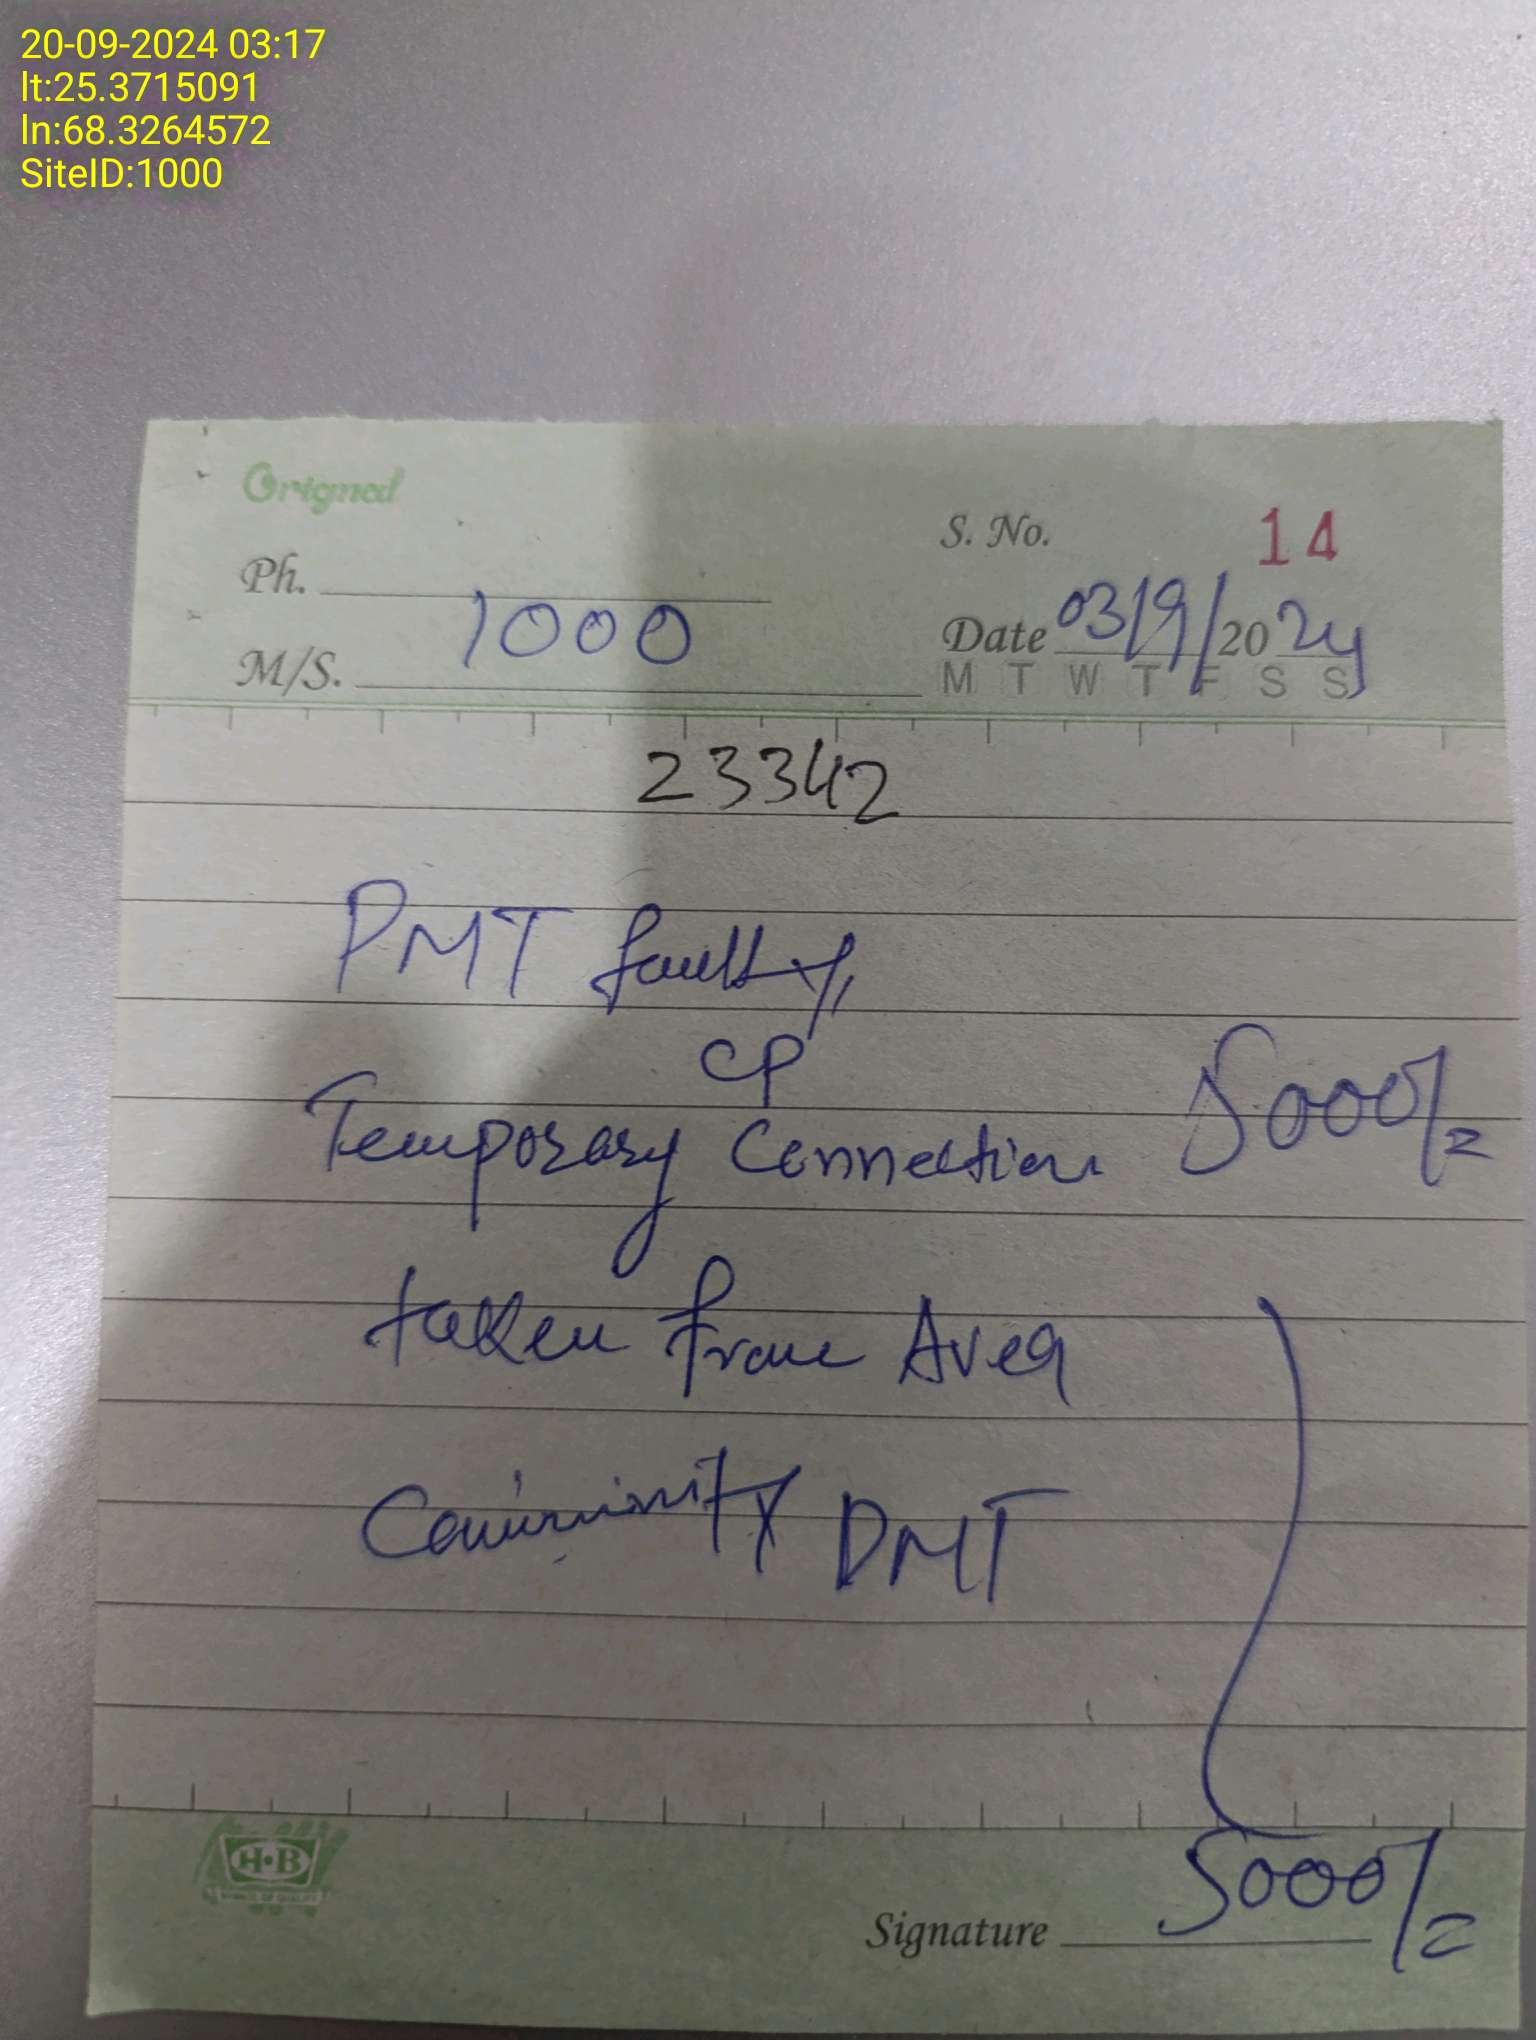 20-09-2024 03:17
lt:25.3715091
ln:68.3264572
SiteID:1000
Original
S. No. 14
Ph.
Date 03/9/2024
M/S. 1000
M T W T F S S
23342
PMT faulty,
CP
Temporary Connection 5000/=
taken from Area
Community PMT
H·B
Signature 5000/=